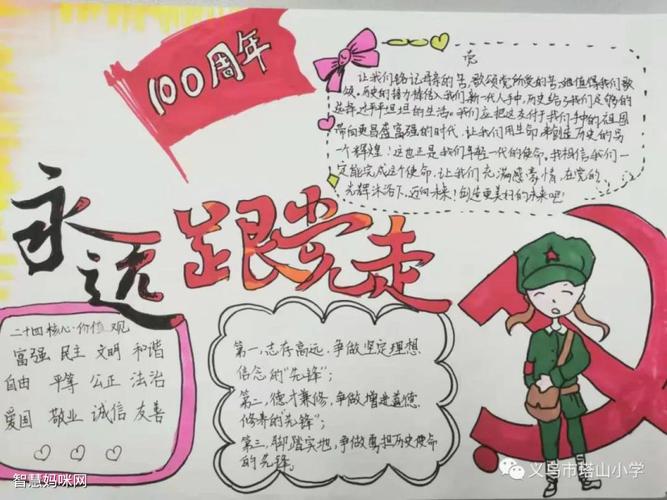 100周年
党
让我们铭记肩负的苦,歌颂党所爱的苦,继值得我们歌
颂。历史的接力棒传入我们新一代人手中,历史给了我们足够的
选择过平平坦坦的生活。我们应把这支付于我们手中的祖国
带向更昌盛富强的时代,让我们用生命来创造历史的另一
个辉煌!这也正是我们年轻一代的使命,我相信我们一
定能完成这个使命,让我们充满感豪情,在党的
光辉沐浴下,迈向未来!创造更美好的未来吧!
永远跟党走
二十四核心·价值观
富强 民主 文明 和谐
自由 平等 公正 法治
爱国 敬业 诚信 友善
第一,志存高远,争做坚定理想
信念的“先锋”;
第二,德才兼修,争做增进道德
修养的“先锋”;
第三,脚踏实地,争做勇担历史使命
的先锋。
智慧妈咪网
义乌市塔山小学